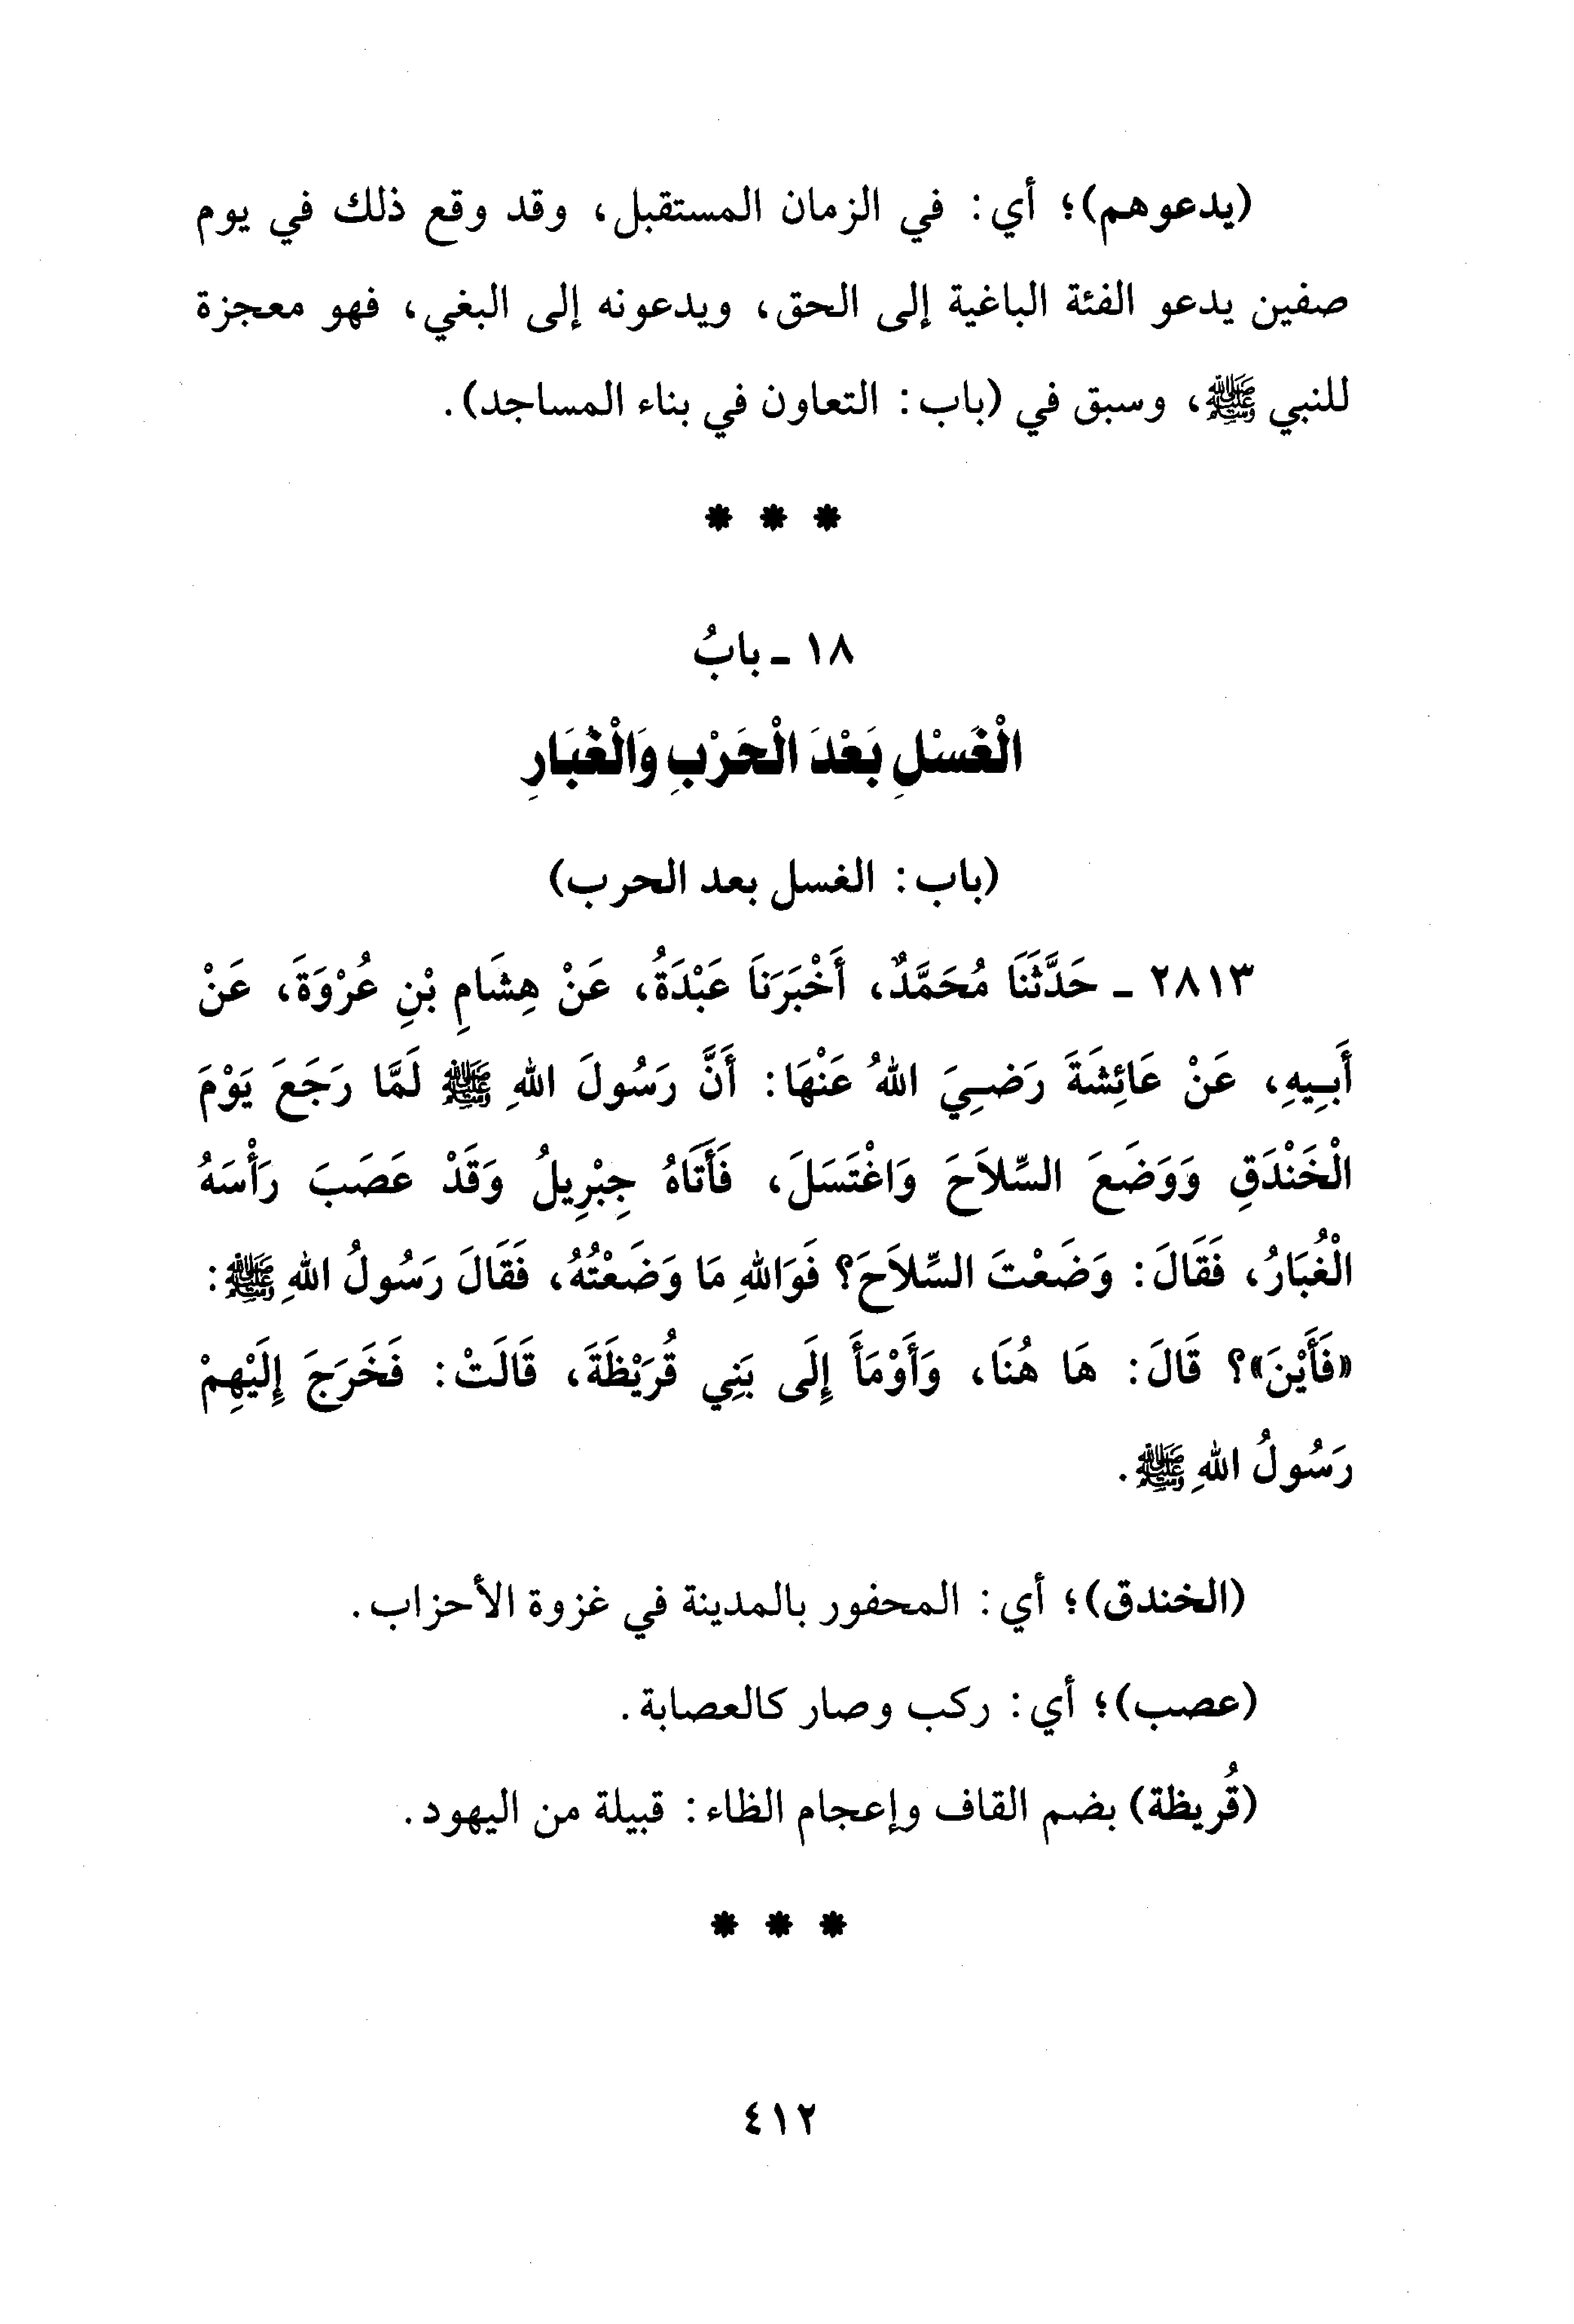 (يدعوهم)؛ أي: في الزمان المستقبل، وقد وقع ذلك في يوم
صفين يدعو الفئة الباغية إلى الحق، ويدعونه إلى البغي، فهو معجزة
للنبي ﷺ، وسبق في (باب: التعاون في بناء المساجد).
* * *
١٨ - بابُ
الْغَسْلِ بَعْدَ الْحَرْبِ وَالْغُبَارِ
(باب: الغسل بعد الحرب)
٢٨١٣ - حَدَّثَنَا مُحَمَّدٌ، أَخْبَرَنَا عَبْدَةُ، عَنْ هِشَامِ بْنِ عُرْوَةَ، عَنْ
أَبِيهِ، عَنْ عَائِشَةَ رَضِيَ اللهُ عَنْهَا: أَنَّ رَسُولَ اللهِ ﷺ لَمَّا رَجَعَ يَوْمَ
الْخَنْدَقِ وَوَضَعَ السِّلاَحَ وَاغْتَسَلَ، فَأَتَاهُ جِبْرِيلُ وَقَدْ عَصَبَ رَأْسَهُ
الْغُبَارُ، فَقَالَ: وَضَعْتَ السِّلاَحَ؟ فَوَاللهِ مَا وَضَعْتُهُ، فَقَالَ رَسُولُ اللهِ ﷺ:
«فَأَيْنَ»؟ قَالَ: هَا هُنَا، وَأَوْمَأَ إِلَى بَنِي قُرَيْظَةَ، قَالَتْ: فَخَرَجَ إِلَيْهِمْ
رَسُولُ اللهِ ﷺ.
(الخندق)؛ أي: المحفور بالمدينة في غزوة الأحزاب.
(عصب)؛ أي: ركب وصار كالعصابة.
(قُريظة) بضم القاف وإعجام الظاء: قبيلة من اليهود.
* * *
٤١٢